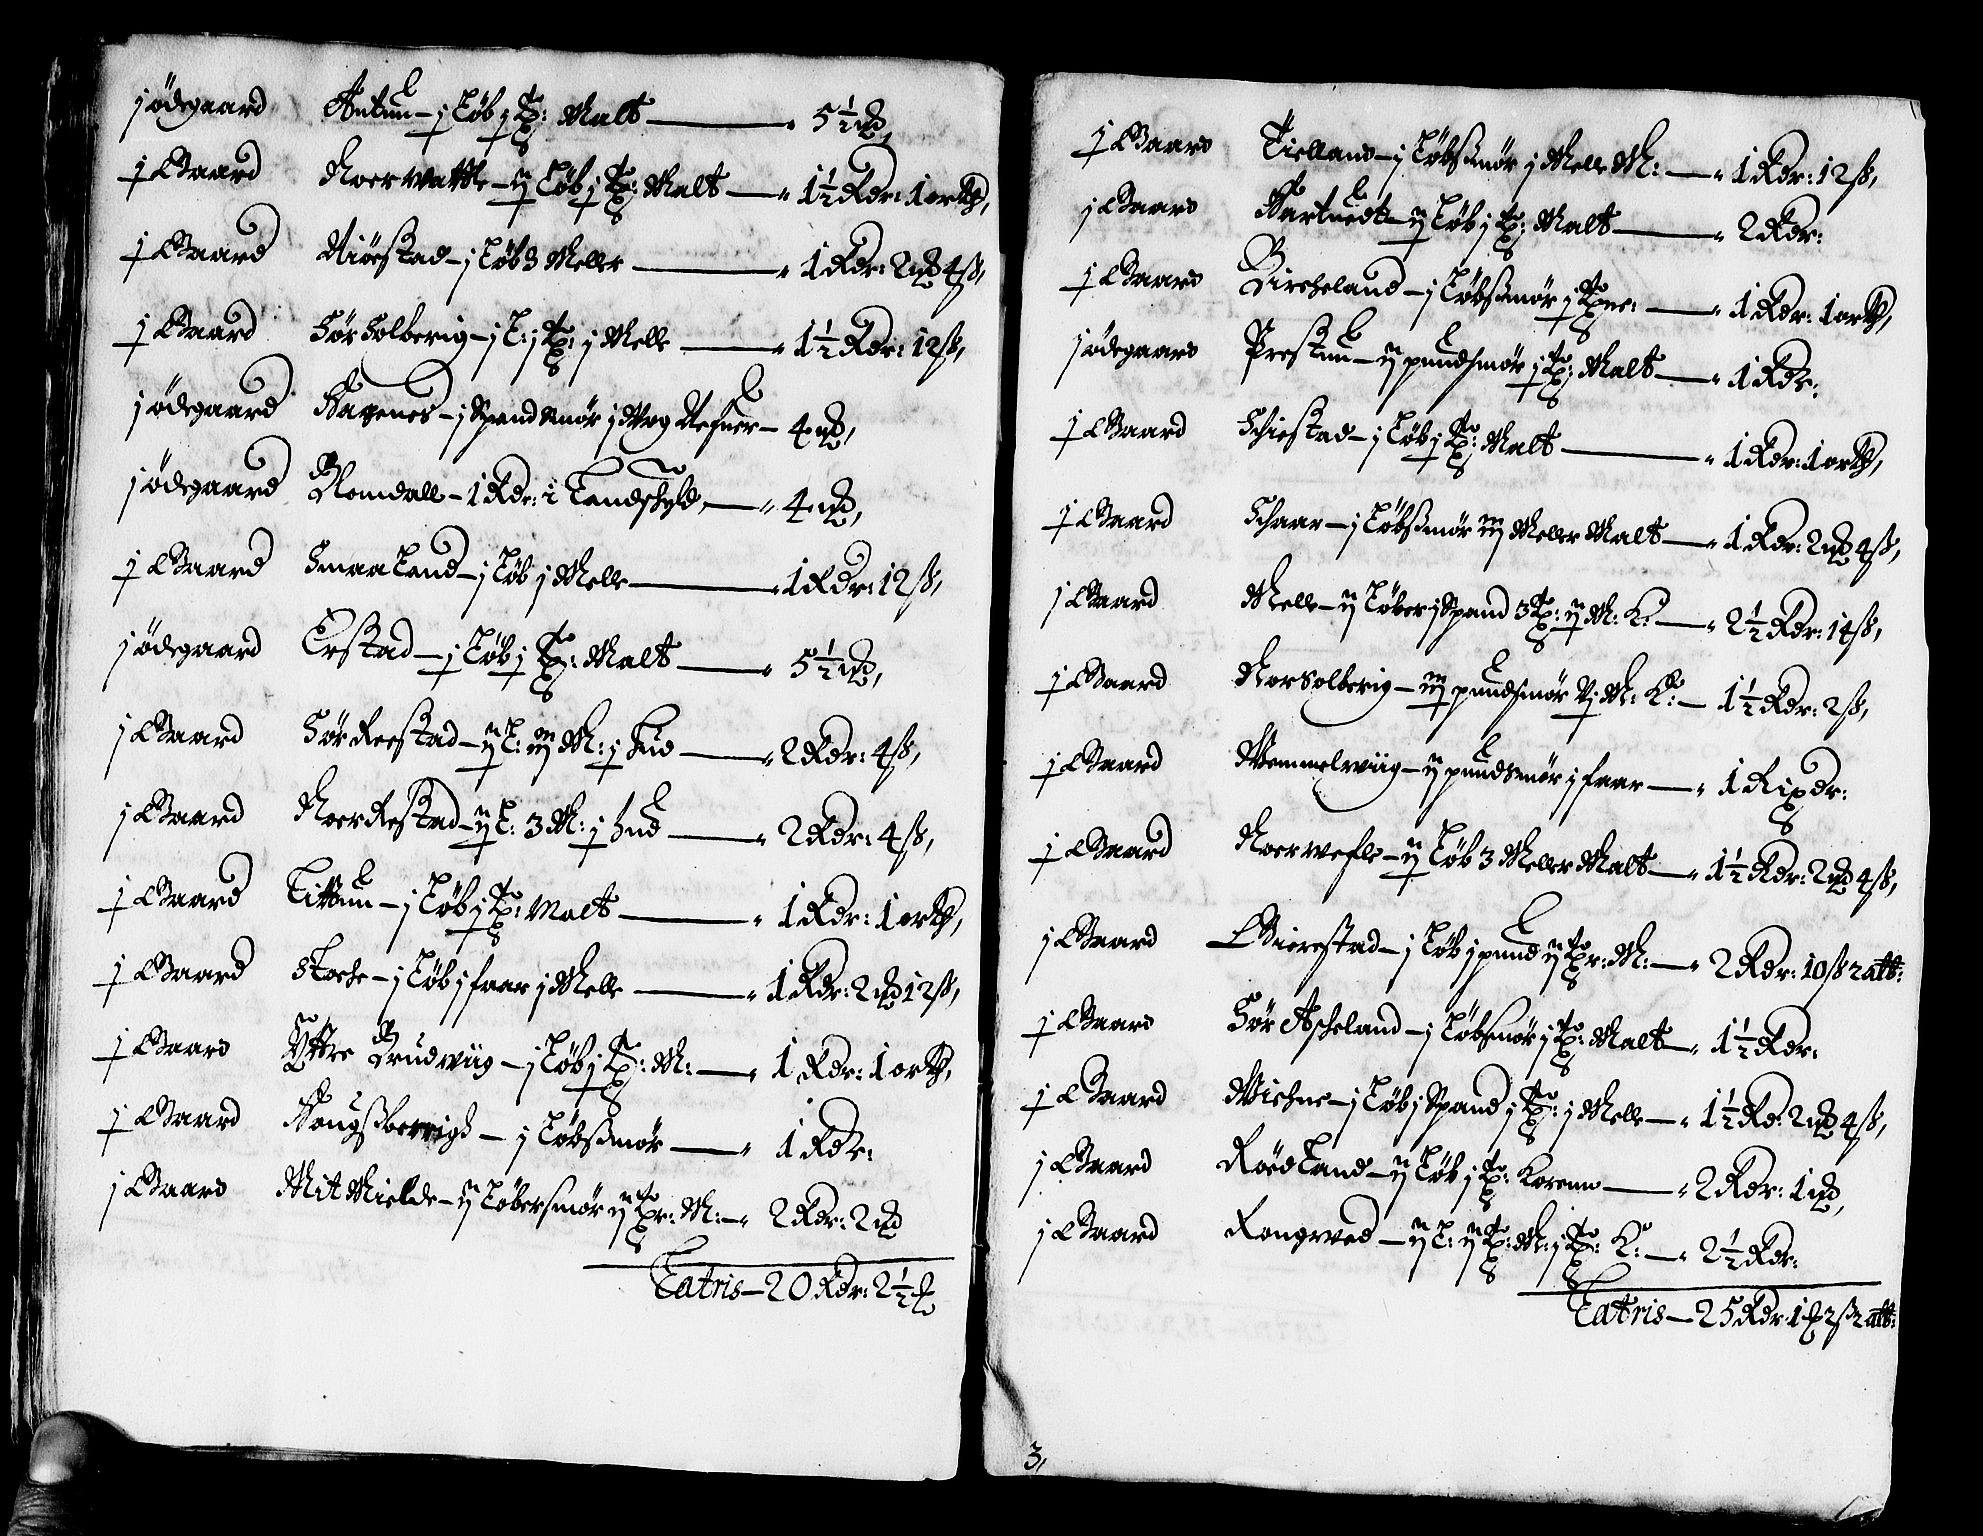 j ödegaard Antun – j Löb j Tp: Malt — 5½ mk,
j Gaard Noerwatle – ij Löb j Tp: Malt — 1½ Rdr: 1 ortt,
j Gaard Miöestad – j Löb 3 Meller — 1 Rdr: 2 mk 4 ß,
j Gaard Sör Solberig – j L: j Tp: j Melle — 1½ Rdr: 12 ß,
j ödegaard Hagenes – j Spand Smör j Wog Nefuer – 4 mk,
j ödegaard Romdall – 1 Rdr: i Landschyld — 4 mk,
j Gaard Smaaland – j Löb j Melle — 1 Rdr: 12 ß,
j ödegaard Erstad – j Löb j Tp: Malt — 5½ mk,
j Gaard Sör Reestad – ij L: iij M: j Hud — 2 Rdr: 4 ß,
j Gaard Noer Restad – ij L: 3 M: j Hud — 2 Rdr: 4 ß,
j Gaard Littun – j Löb j Tp: Malt — 1 Rdr: 1 ortt,
j Gaard Stoche – j Löb j faar j Melle — 1 Rdr: 2 mk 12 ß,
j Gaard Yttre Brudwiig – j Löb j Tp: M: — 1 Rdr: 1 ortt,
j Gaard Hougßberrigh – j Löbßmör — 1 Rdr:
j Gaard Mit Mielde – ij Löber smör ij Tpr: M: – 2 Rdr: 2 mk
Latris – 20 Rdr: 2½ mk
j Gaard Tiellans – j Löbßmör j Melle M: — 1 Rdr: 12 ß,
j Gaard Hartuedt – ij Löb j Tp: Malt — 2 Rdr:
j Gaard Bircheland – j Löbßmör j Tpne: — 1 Rdr: 1 ortt,
j ödegaard Prestun – ij pundsmör j Tp: Malt — 1 Rdr:
j Gaard Schiestad – j Löb j Tp: Malt — 1 Rdr: 1 ortt,
j Gaard Schaar – j Löbßmör iij Meller Malt — 1 Rdr: 2 mk 4 ß,
j Gaard Melle – ij Löber j Spand 3 Tp: ij M: K: — 2½ Rdr: 14 ß,
j Gaard Nor Solberig – iij pundsmör Vj M: K: – 1½ Rdr: 2 ß,
j Gaard Wemmelwiig – ij pundsmör j faar — 1 Rixdr:
j Gaard Noerwefle – ij Löb 3 Meller Malt — 1½ Rdr: 2 mk 4 ß,
j Gaard Gierestad – j Löb j pund ij Tpr: M: — 2 Rdr: 10 ß 2 alb:
j Gaard Sör Ascheland – j Löbsmör j Tp: Malt — 1½ Rdr:
j Gaard Michne – j Löb j Spand j Tp: j Melle — 1½ Rd: 2 mk 4 ß,
j Gaard Röedland – ij Löb j Tp: Korenn — 2 Rdr: 1 mk,
j Gaard Rongewed – ij L: ij Tp: M: j Tp: K: — 2½ Rdr:
Latris – 25 Rdr 1 mk 2 ß 2 alb:
3,